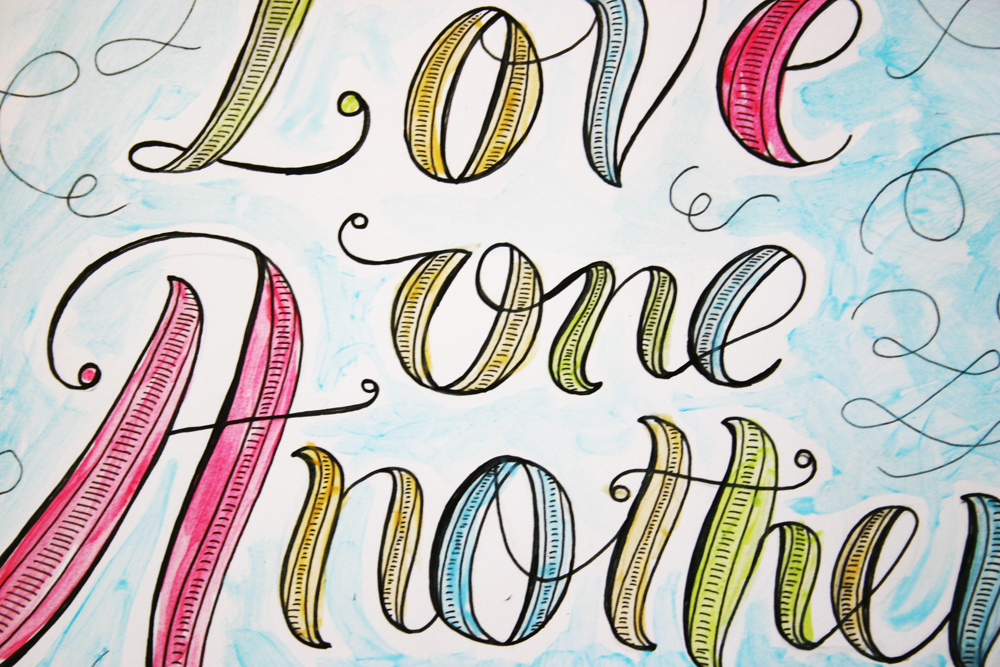 Love
one
Another